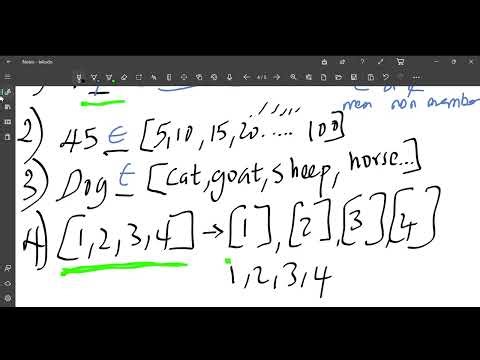 Notes - leKodo
∈ or ∉
mem non member
2) 45 ∈ [5,10,15,20..... 100]
3) Dog ∈ [cat, goat, sheep, horse...]
4) [1,2,3,4] → [1], [2], [3] [4]
1,2,3,4